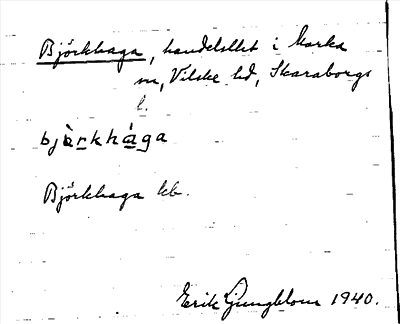 Björkhaga, handelslht i Marka
sn, Vilske hd, Skaraborgs
l.
bjè̱rkhá̱ga
Björkhaga kb.
Erik Ljungblom 1940.